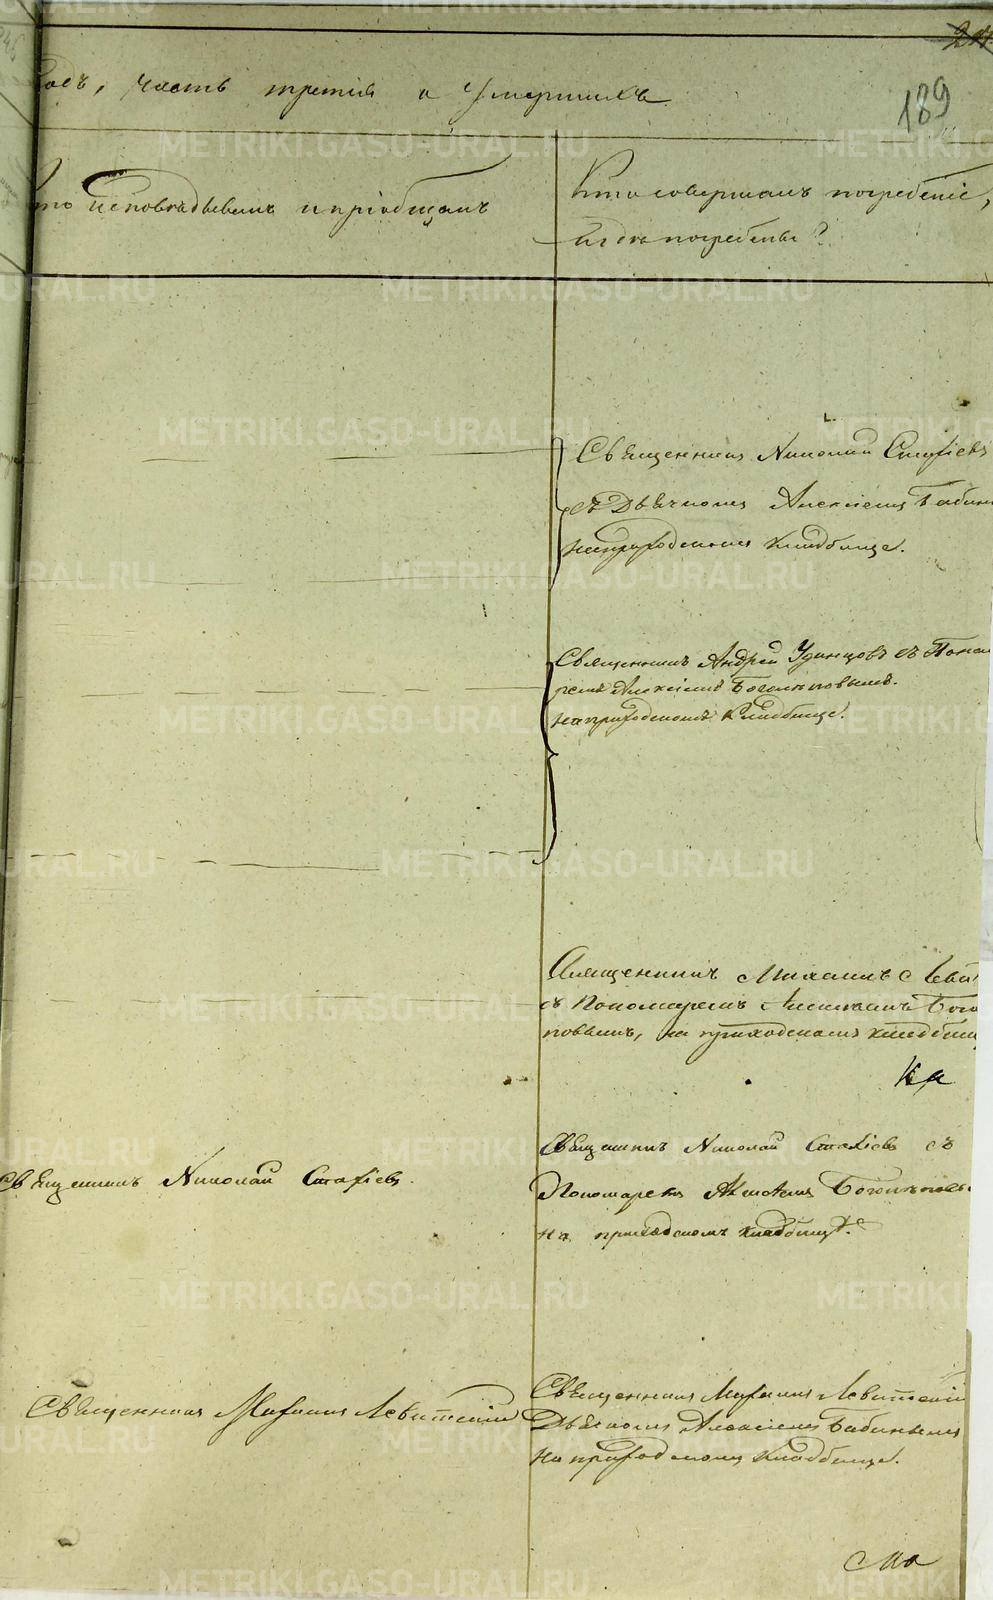 189
годъ, часть третія о умершихъ
Кто исповѣдывалъ и пріобщалъ
Кто совершалъ погребеніе,
и гдѣ погребены?
Священникъ Николай Стахіевъ
съ Дьячкомъ Алексіемъ Бабин
на приходскомъ кладбищѣ.
Священникъ Андрей Удинцовъ съ Поно
ремъ Алексіемъ Боголѣповымъ.
на приходскомъ кладбище.
Священникъ Михаилъ Леви
съ Пономаремъ Алексѣемъ Бого
повымъ, на приходскомъ кладбищ
Священникъ Николай Стахіевъ.
Священникъ Николай Стахіевъ съ
Пономаремъ Боголѣповы
на приходскомъ кладбищѣ.
Священникъ Михаилъ Левитскій
Священникъ Михаилъ Левитскій
Дьячкомъ Алексіемъ Бабинымъ
на приходскомъ кладбище.
METRIKI.GASO-URAL.RU